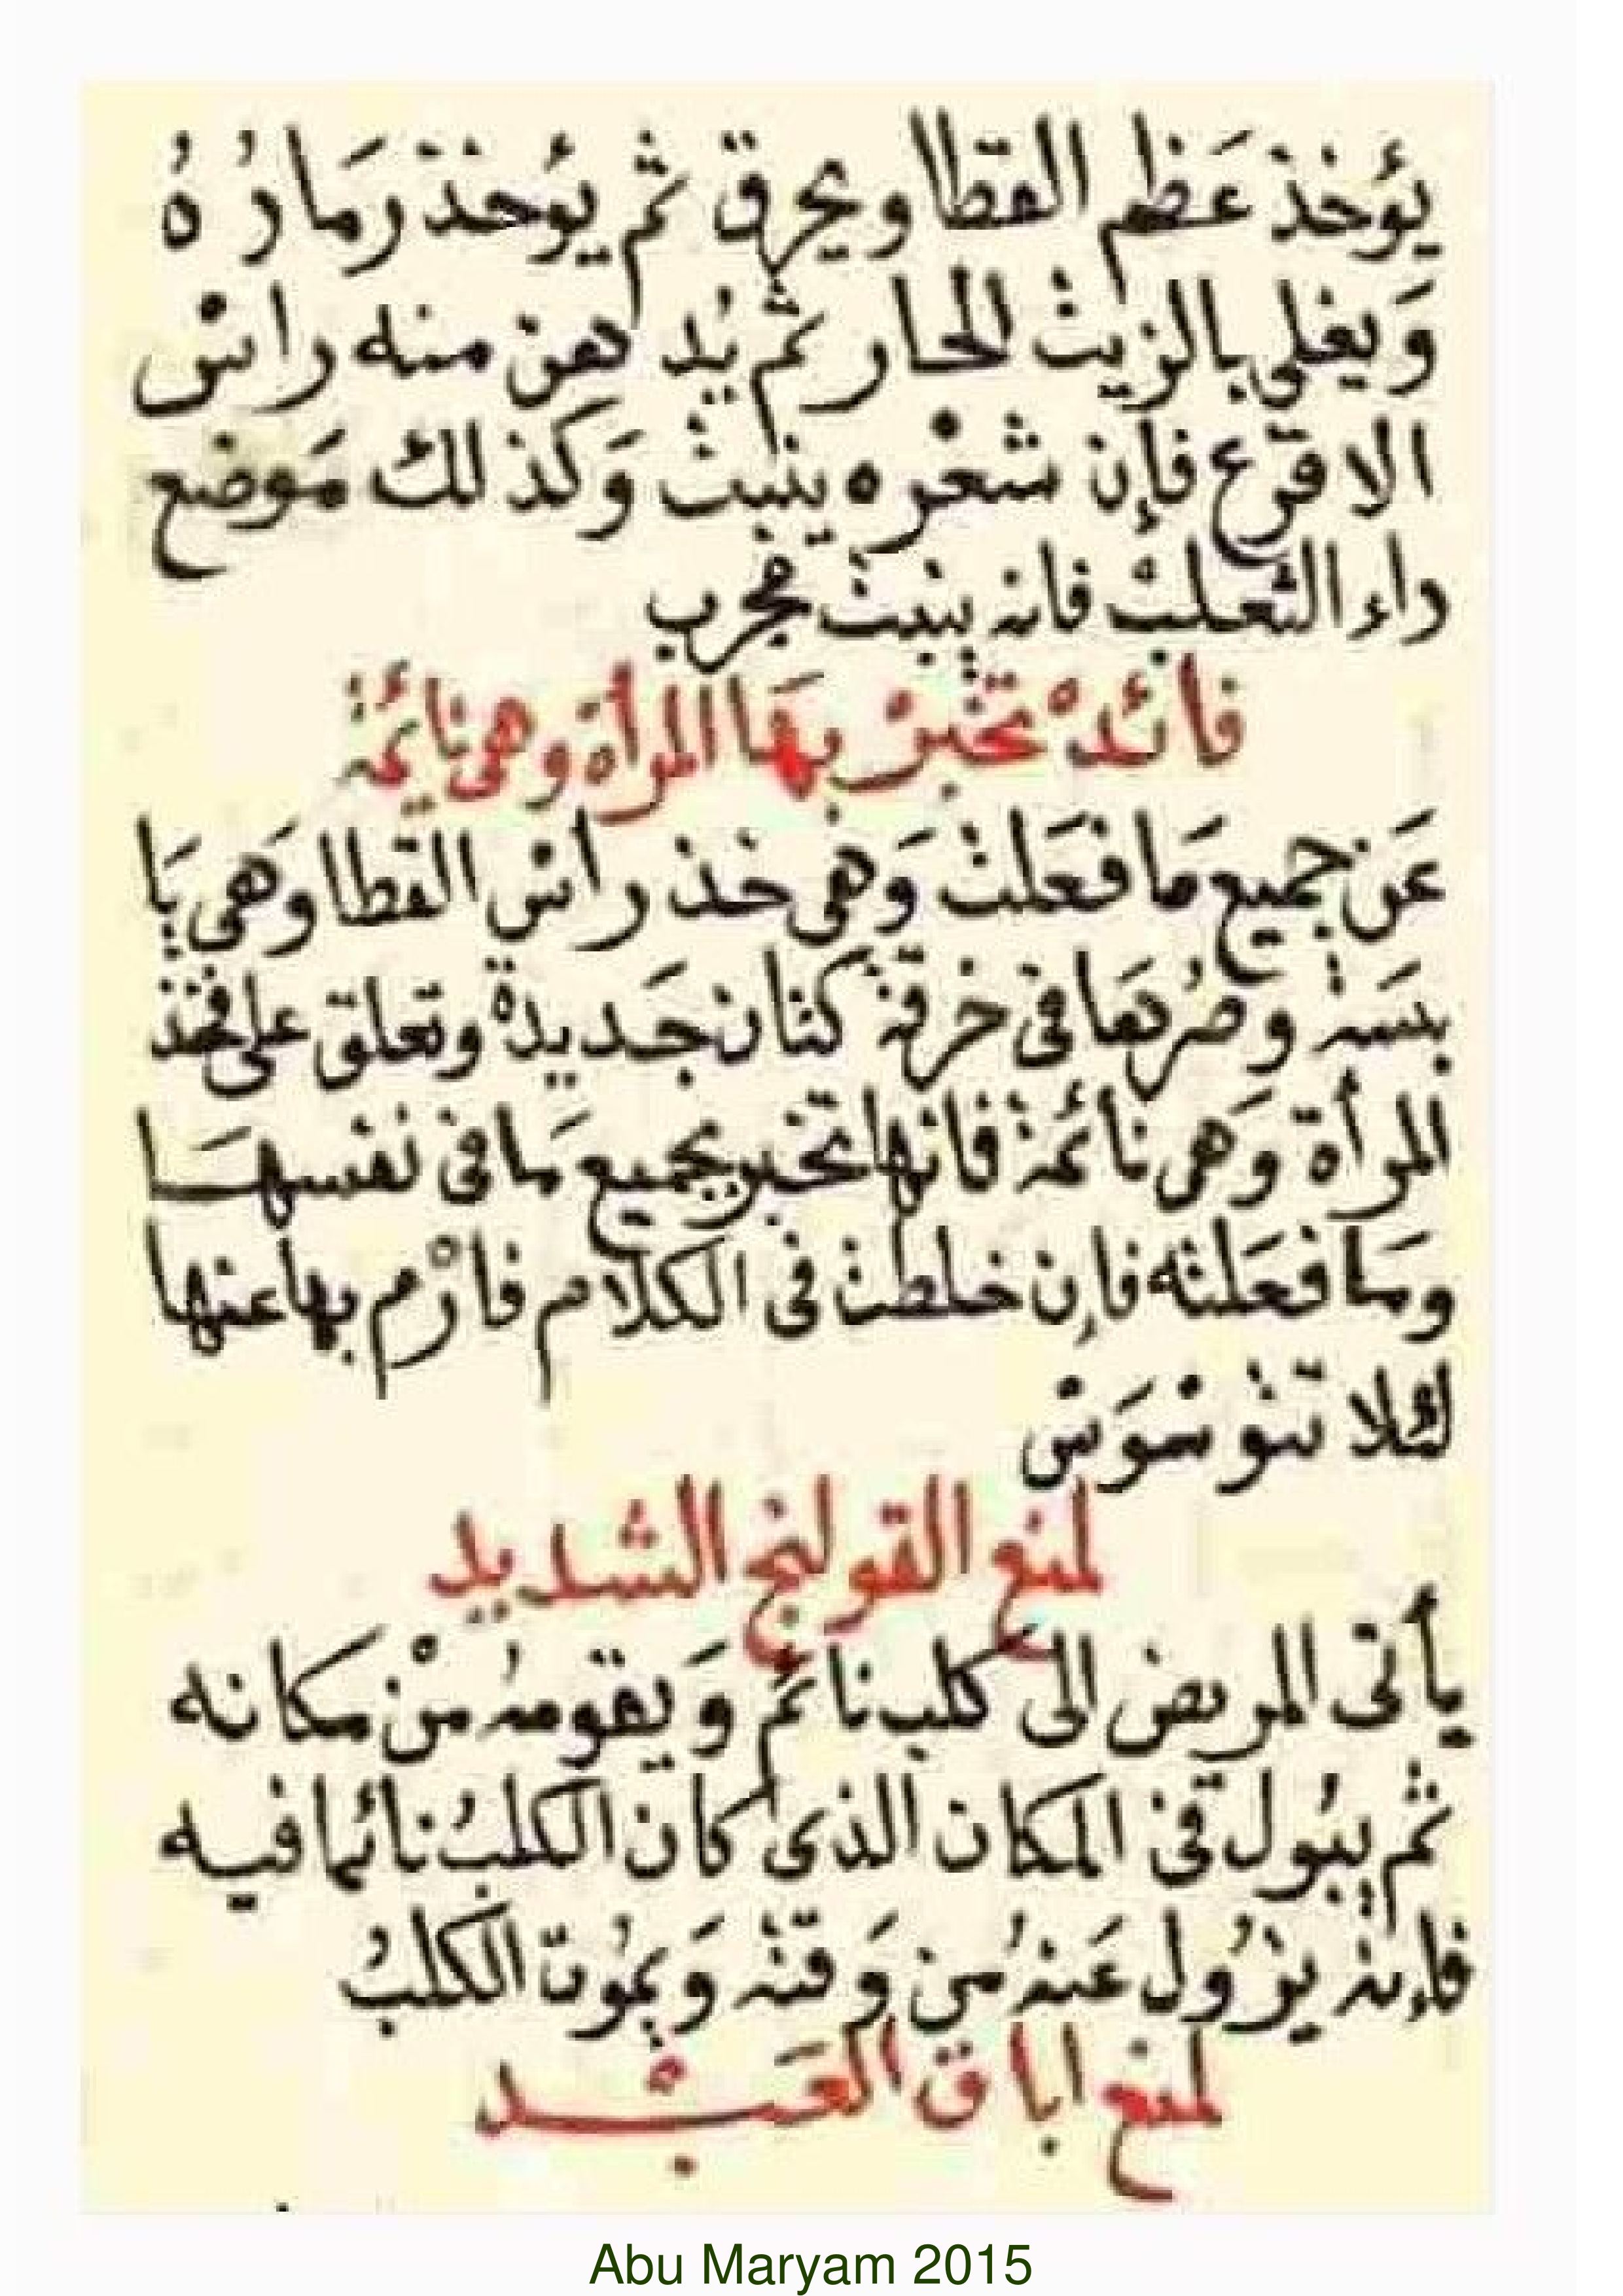 يُؤخذ عَظم القطا ويحرق ثم يُؤخذ رَمادُهُ
وَيغلى بالزيت الحار ثم يُدهن منه رأسْ
الاقرع فإن شعْره ينبت وَكذلك مَوضع
داء الثعلب فانه ينبت مجرب
فائدة تخبرْ بهَا المرأة وهى نائمة
عَن جميع مَا فعَلت وَهى خذ رأسْ القطا وهى يَا
بسَة وصُرهَا فى خرقة كتان جَديدة وتعلق على فخذ
المرأة وَهى نائمة فانها تخبر بجميع مَا فى نفسهَا
ومَا فعَلته فإن خلطت فى الكلام فارْم بها عنها
لئلا تتوسْوَسْ
لمنع القولنج الشديد
يأتى المريض الى كلب نائم وَيقومهُ منْ مكانه
ثم يبُول فى المكان الذى كان الكلبُ نائما فيه
فإنه يزُول عَنهُ من وَقته وَيمُوت الكلبُ
لمنع اباق العَبْد
Abu Maryam 2015